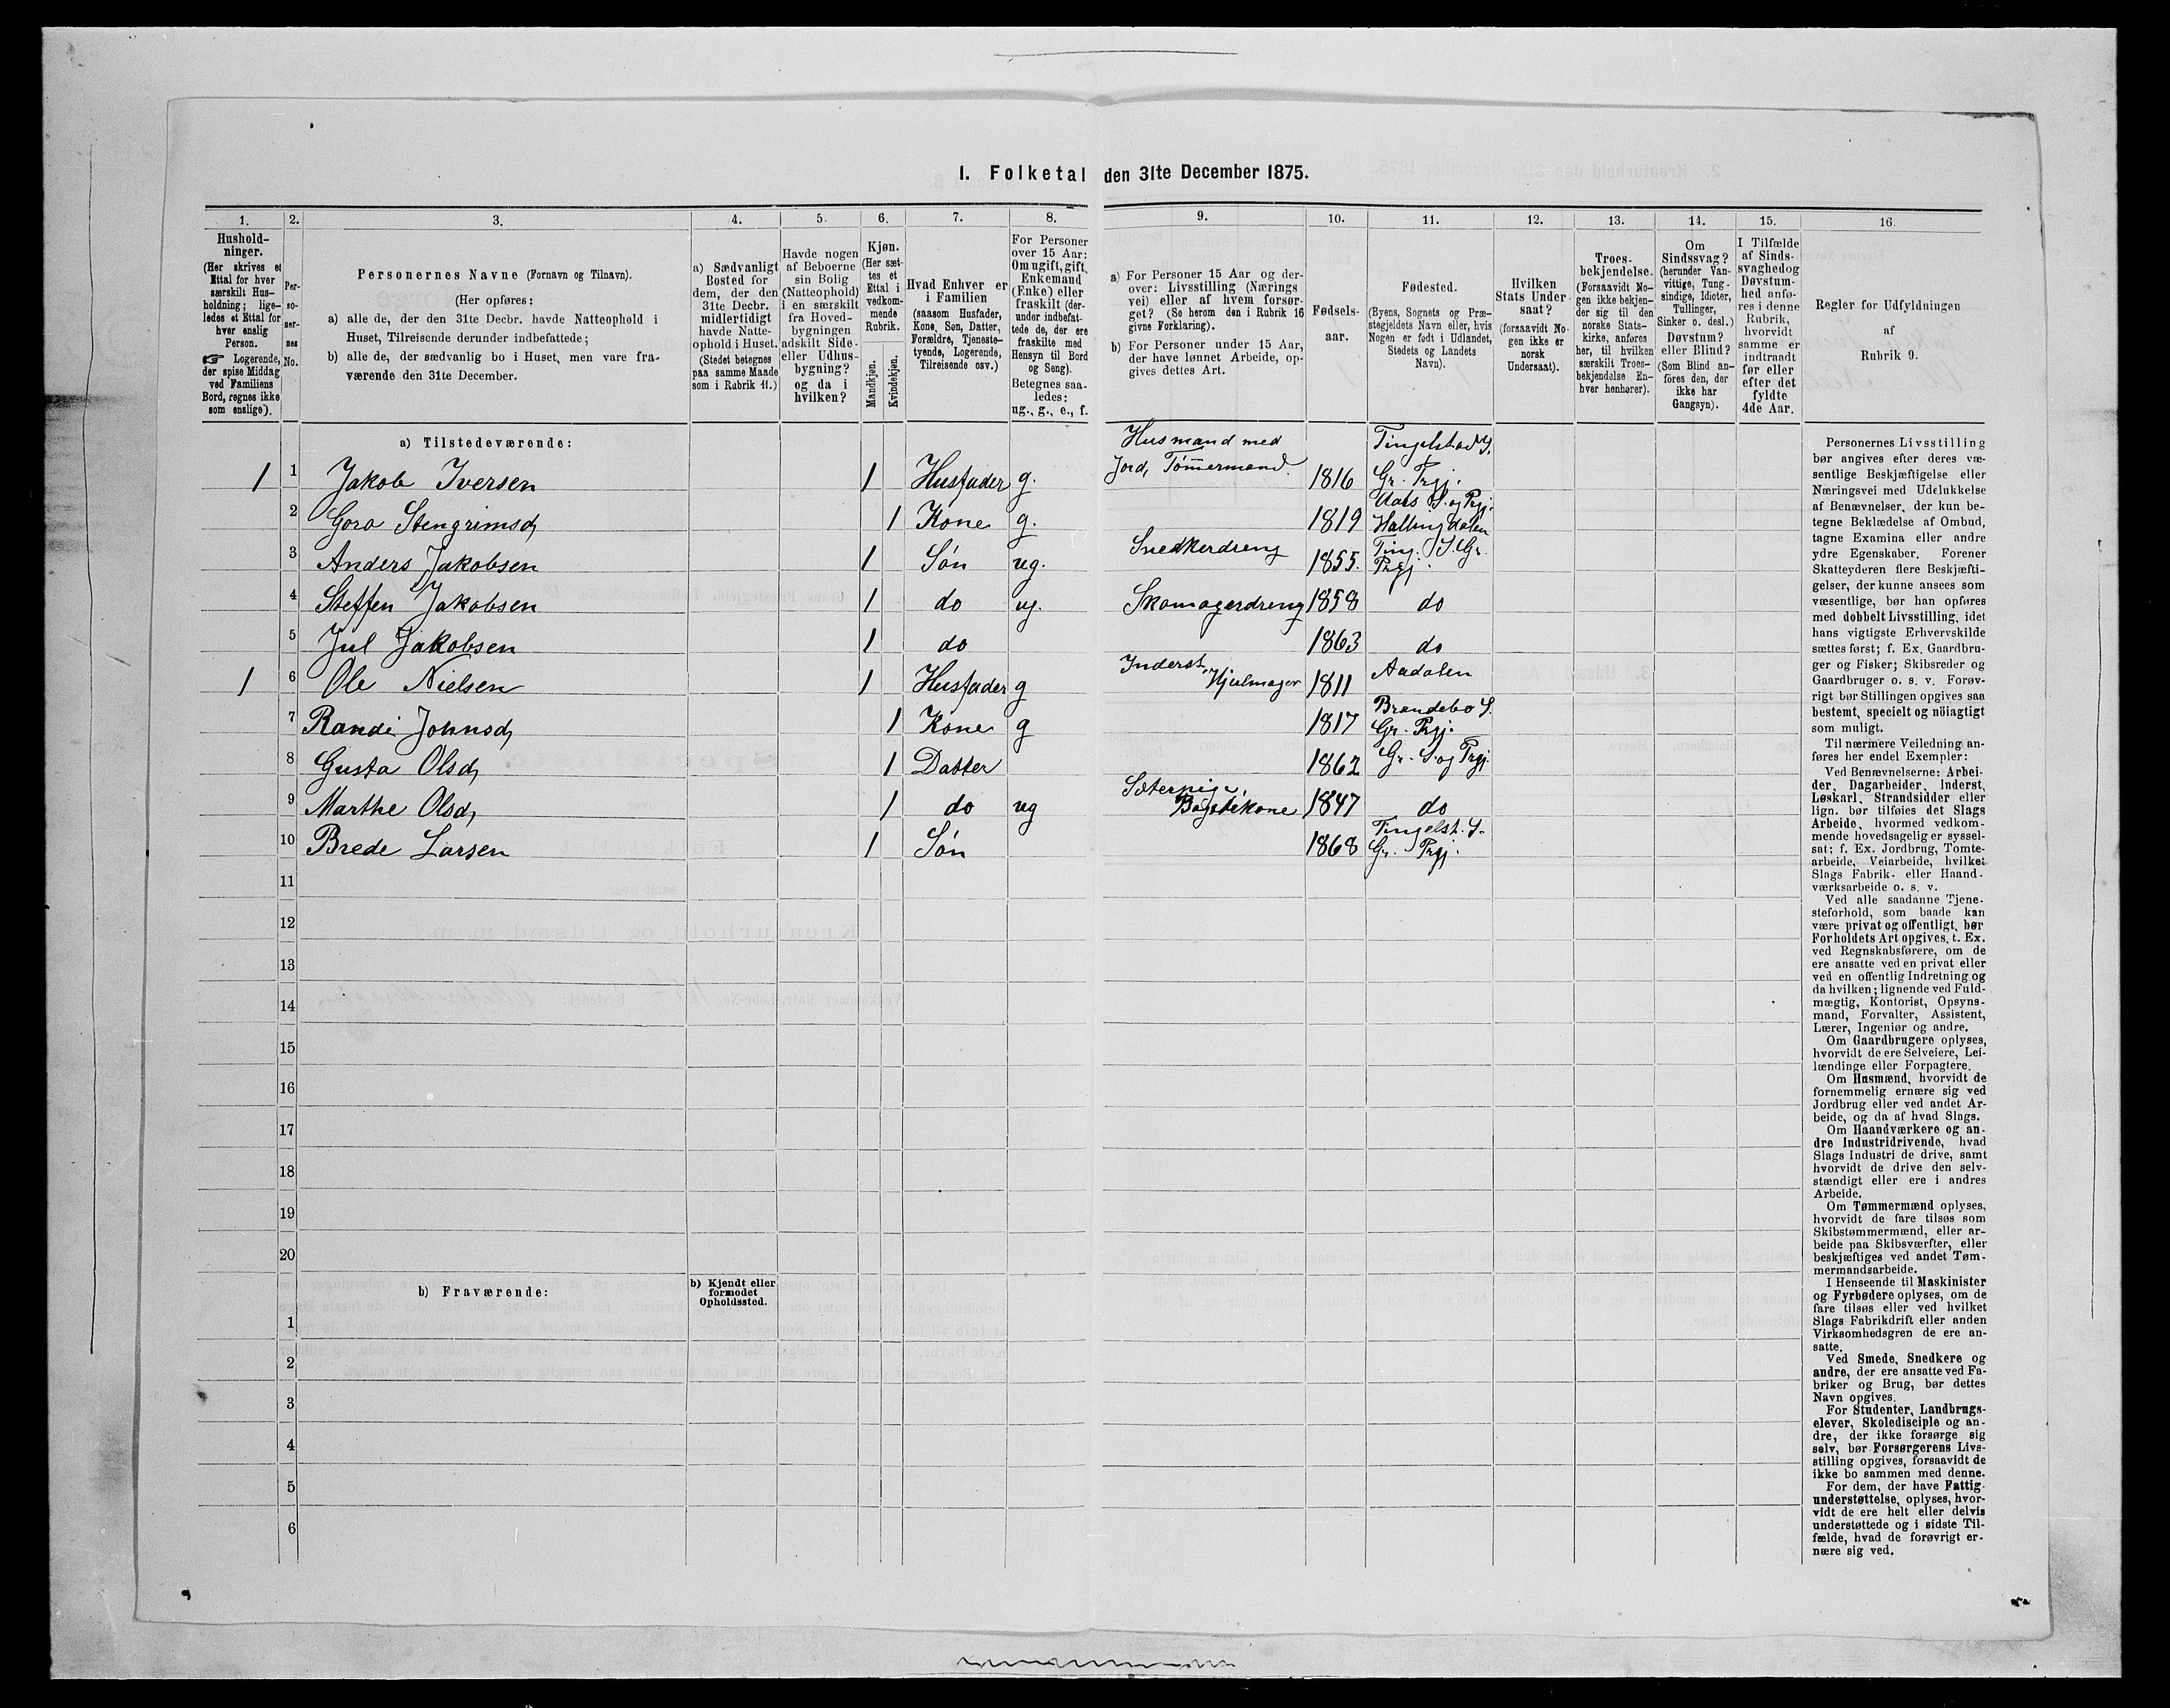 1. Folketal den 31te December 1875.
1. 2. 3. 4. 5. 6. 7. 8. 9. 10. 11. 12. 13. 14. 15. 16.
Hushold-
ninger.
(Her skrives et
Ettal for hver
særskilt Hus-
holdning; lige-
ledes et Ettal for
hver enslig
Person.
☞ Logerende,
der spise Middag
ved Familiens
Bord, regnes ikke
som enslige).
Per-
so-
ner-
nes
No.
Personernes Navne (Fornavn og Tilnavn).
(Her opføres:
a) alle de, der den 31te Decbr. havde Natteophold i
Huset, Tilreisende derunder indbefattede;
b) alle de, der sædvanlig bo i Huset, men vare fra-
værende den 31te December.
a) Sædvanligt
Bosted for
dem, der den
31te Decbr.
midlertidigt
havde Natte-
ophold i Huset.
(Stedet betegnes
paa samme Maade
som i Rubrik 11.)
Havde nogen
af Beboerne
sin Bolig
(Natteophold)
i en særskilt
fra Hoved-
bygningen
adskilt Side-
eller Udhus-
bygning?
og da i
hvilken?
Kjøn.
(Her sæt-
tes et
Ettal i
vedkom-
mende
Rubrik.
Mandkjøn.
Kvindekjøn.
Hvad Enhver er
i Familien
(saasom Husfader,
Kone, Søn, Datter,
Forældre, Tjeneste-
tyende, Logerende,
Tilreisende osv.)
For Personer
over 15 Aar:
Om ugift, gift,
Enkemand
(Enke) eller
fraskilt (der-
under indbefat-
tede de, der ere
fraskilte med
Hensyn til Bord
og Seng).
Betegnes saa-
ledes:
ug., g., e., f.
a) For Personer 15 Aar og der-
over: Livsstilling (Nærings
vei) eller af hvem forsør-
get? (Se herom den i Rubrik 16
givne Forklaring).
b) For Personer under 15 Aar,
der have lønnet Arbeide, op-
gives dettes Art.
Fødsels-
aar.
Fødested.
(Byens, Sognets og Præ-
stegjeldets Navn eller, hvis
Nogen er født i Udlandet,
Stedets og Landets
Navn).
Hvilken
Stats Under-
saat?
(forsaavidt No-
gen ikke er
norsk
Undersaat).
Troes-
bekjendelse.
(Forsaavidt No-
gen ikke bekjen-
der sig til den
norske Stats-
kirke, anføres
her, til hvilken
særskilt Troes-
bekjendelse En-
hver henhører).
Om
Sindssvag?
(herunder Van-
vittige, Tung-
sindige, Idioter,
Tullinger,
Sinker o. desl.)
Døvstum?
eller Blind?
(Som Blind an-
føres den, der
ikke har
Gangsyn).
I Tilfælde
af Sinds-
svaghed og
Døvstum-
hed anfø-
res i denne
Rubrik,
hvorvidt
samme er
indtraadt
før eller
efter det
fyldte
4de Aar.
Regler for Udfyldningen
af
Rubrik 9.
a) Tilstedeværende:
Husmand med Tingelstad S.
1 1 Jakob Iversen 1 Husfader g. Jord, Tømmermand. 1816 Gr. Prgj.
Aals S. og Prgj.
2 Goro Stengrimsd, 1 Kone g. 1819 Hallingdalen
3 Anders Jakobsen 1 Søn ug. Snedkerdreng 1855. Ting. S. Gr.
Prgj.
4 Steffen Jakobsen 1 do ug. Skomagerdreng 1858 do
5 Jul Jakobsen 1 do 1863 do
1 6 Ole Nielsen 1 Husfader g Inderst, Hjulmager 1811 Aadalen
Brandebo S.
7 Randi Johnsd, 1 Kone g 1817 Gr. Prgj.
8 Gusta Olsd, 1 Datter 1862 Gr. S. og Prgj.
9 Marthe Olsd, 1 do ug Sæterpige, Bagstekone 1847 do
Tingelst. S.
10 Brede Larsen 1 Søn 1868 Gr. Prgj.
11
12
13
14
15
16
17
18
19
20
b) Fraværende:
b) Kjendt eller
formodet
Opholdssted.
1
2
3
4
5
6
Personernes Livsstilling
bør angives efter deres væ-
sentlige Beskjæftigelse eller
Næringsvei med Udelukkelse
af Benævnelser, der kun be-
tegne Beklædelse af Ombud,
tagne Examina eller andre
ydre Egenskaber. Forener
Skatteyderen flere Beskjæfti-
gelser, der kunne ansees som
væsentlige, bør han opføres
med dobbelt Livsstilling, idet
hans vigtigste Erhvervskilde
sættes først; f. Ex. Gaardbru-
ger og Fisker; Skibsreder og
Gaardbruger o. s. v. Forøv-
rigt bør Stillingen opgives saa
bestemt, specielt og nöiagtigt
som muligt.
Til nærmere Veiledning an-
føres her endel Exempler:
Ved Benævnelserne: Arbei-
der, Dagarbeider, Inderst,
Løskarl, Strandsidder eller
lign. bør tilføies det Slags
Arbeide, hvormed vedkom-
mende hovedsagelig er syssel-
sat; f. Ex. Jordbrug, Tomte-
arbeide, Veiarbeide, hvilket
Slags Fabrik- eller Haand-
værksarbeide o. s. v.
Ved alle saadanne Tjene-
steforhold, som baade kan
være privat og offentligt, bør
Forholdets Art opgives, t. Ex.
ved Regnskabsførere, om de
ere ansatte ved en privat eller
ved en offentlig Indretning og
da hvilken; lignende ved Fuld-
mægtig, Kontorist, Opsyns-
mand, Forvalter, Assistent,
Lærer, Ingeniør og andre.
Om Gaardbrugere oplyses,
hvorvidt de ere Selveiere, Lei-
lændinge eller Forpagtere.
Om Husmænd, hvorvidt de
fornemmelig ernære sig ved
Jordbrug eller ved andet Ar-
beide, og da af hvad Slags.
Om Haandværkere og an-
dre Industridrivende, hvad
Slags Industri de drive, samt
hvorvidt de drive den selv-
stændigt eller ere i andres
Arbeide.
Om Tømmermænd oplyses,
hvorvidt de fare tilsøs som
Skibstømmermænd, eller ar-
beide paa Skibsværfter, eller
beskjæftiges ved andet Tøm-
mermandsarbeide.
I Henseende til Maskinister
og Fyrbødere oplyses, om de
fare tilsøs eller ved hvilket
Slags Fabrikdrift eller anden
Virksomhedsgren de ere an-
satte.
Ved Smede, Snedkere og
andre, der ere ansatte ved Fa-
briker og Brug, bør dettes
Navn opgives.
For Studenter, Landbrugs-
elever, Skoledisciple og an-
dre, der ikke forsørge sig
selv, bør Forsørgerens Livs-
stilling opgives, forsaavidt de
ikke bo sammen med denne.
For dem, der have Fattig-
understøttelse, oplyses, hvor-
vidt de ere helt eller delvis
understøttede og i sidste Til-
fælde, hvad de forøvrigt er-
nære sig ved.